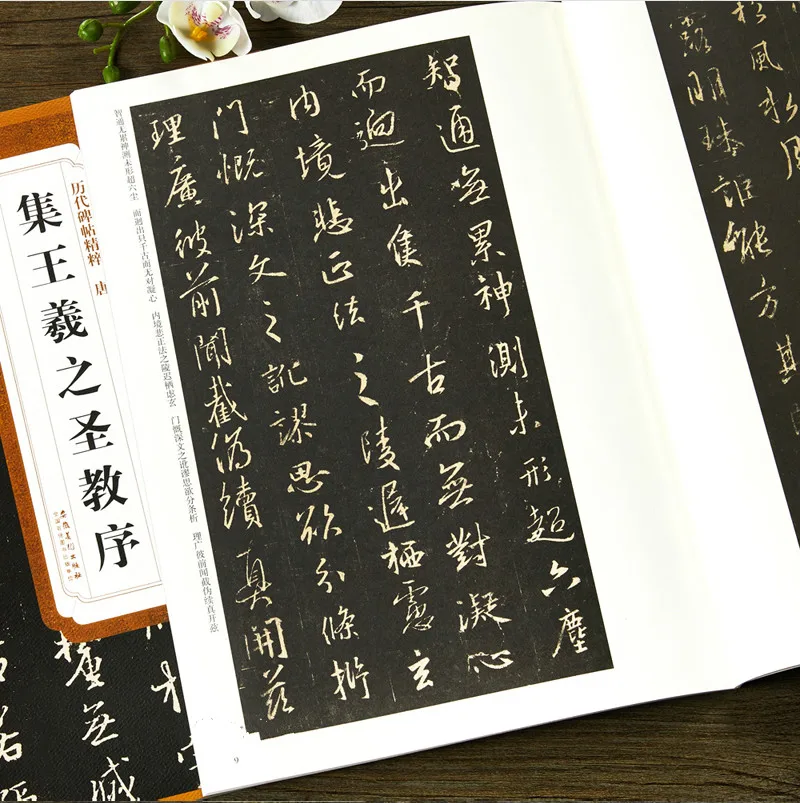 松風水月
露明珠詎能方其
智通無累神測未形超六塵
而迥出隻千古而無對凝心
内境悲正法之陵遲栖慮玄
门慨深文之訛謬思欲分條析
理廣彼前聞截偽續真開茲
智通无累神测未形超六尘 而迥出只千古而无对凝心 内境悲正法之陵迟栖虑玄 门慨深文之讹谬思欲分条析 理广彼前闻截伪续真开兹
9
历代碑帖精粹 唐
集王羲之圣教序
安徽美术出版社
無滅